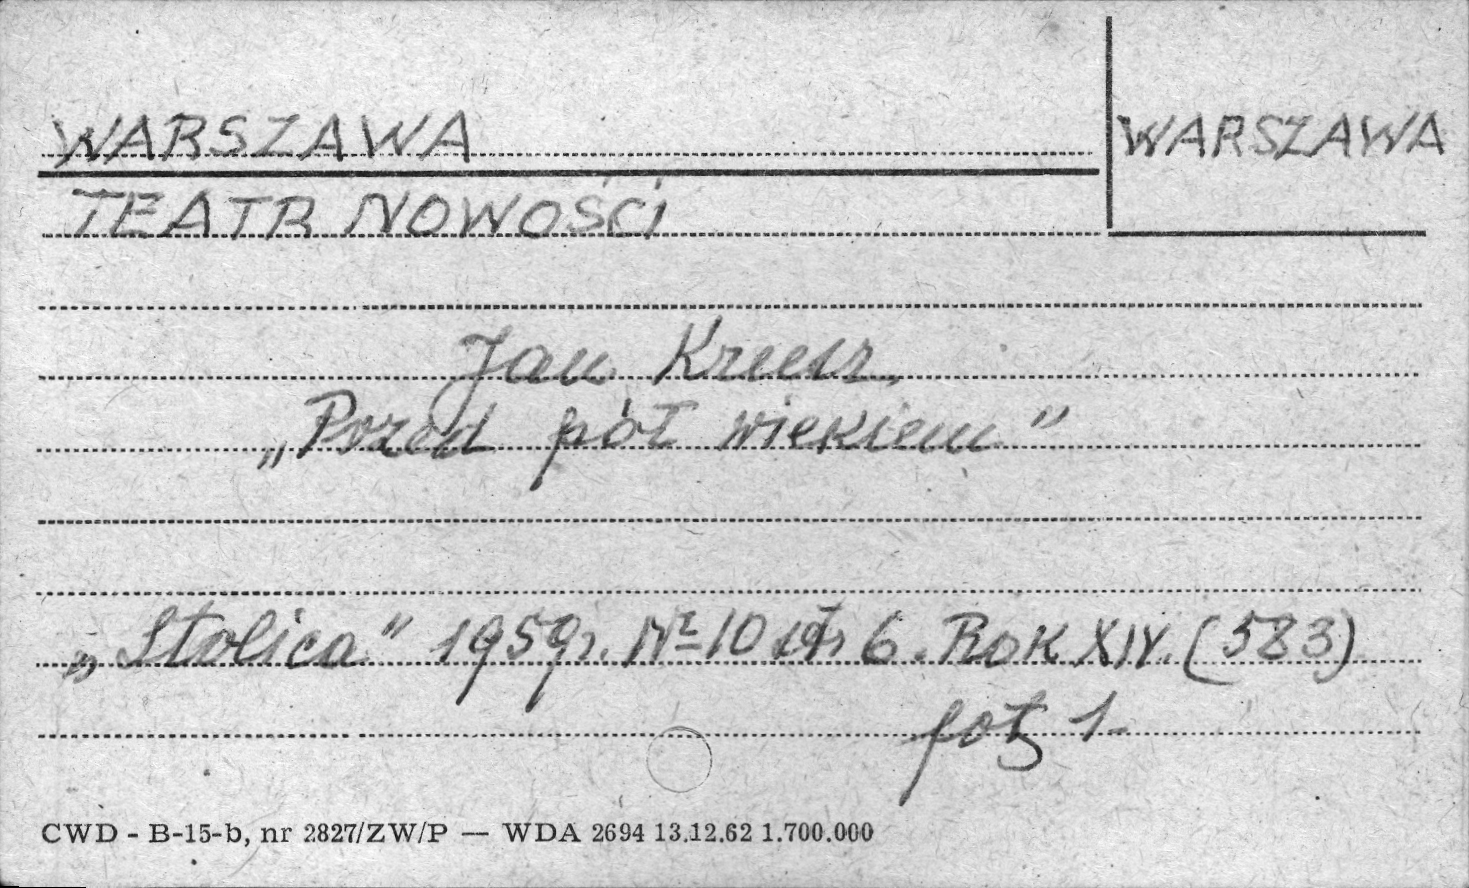 WARSZAWA
WARSZAWA
TEATR NOWOŚCI
Jan
„Przed pół wiekiem”
„Stolica” 1959r. Nr 10 str 6. Rok XIV. (583)
fot. 1.
CWD - B-15-b, nr 2827/ZW/P — WDA 2694 13.12.62 1.700.000